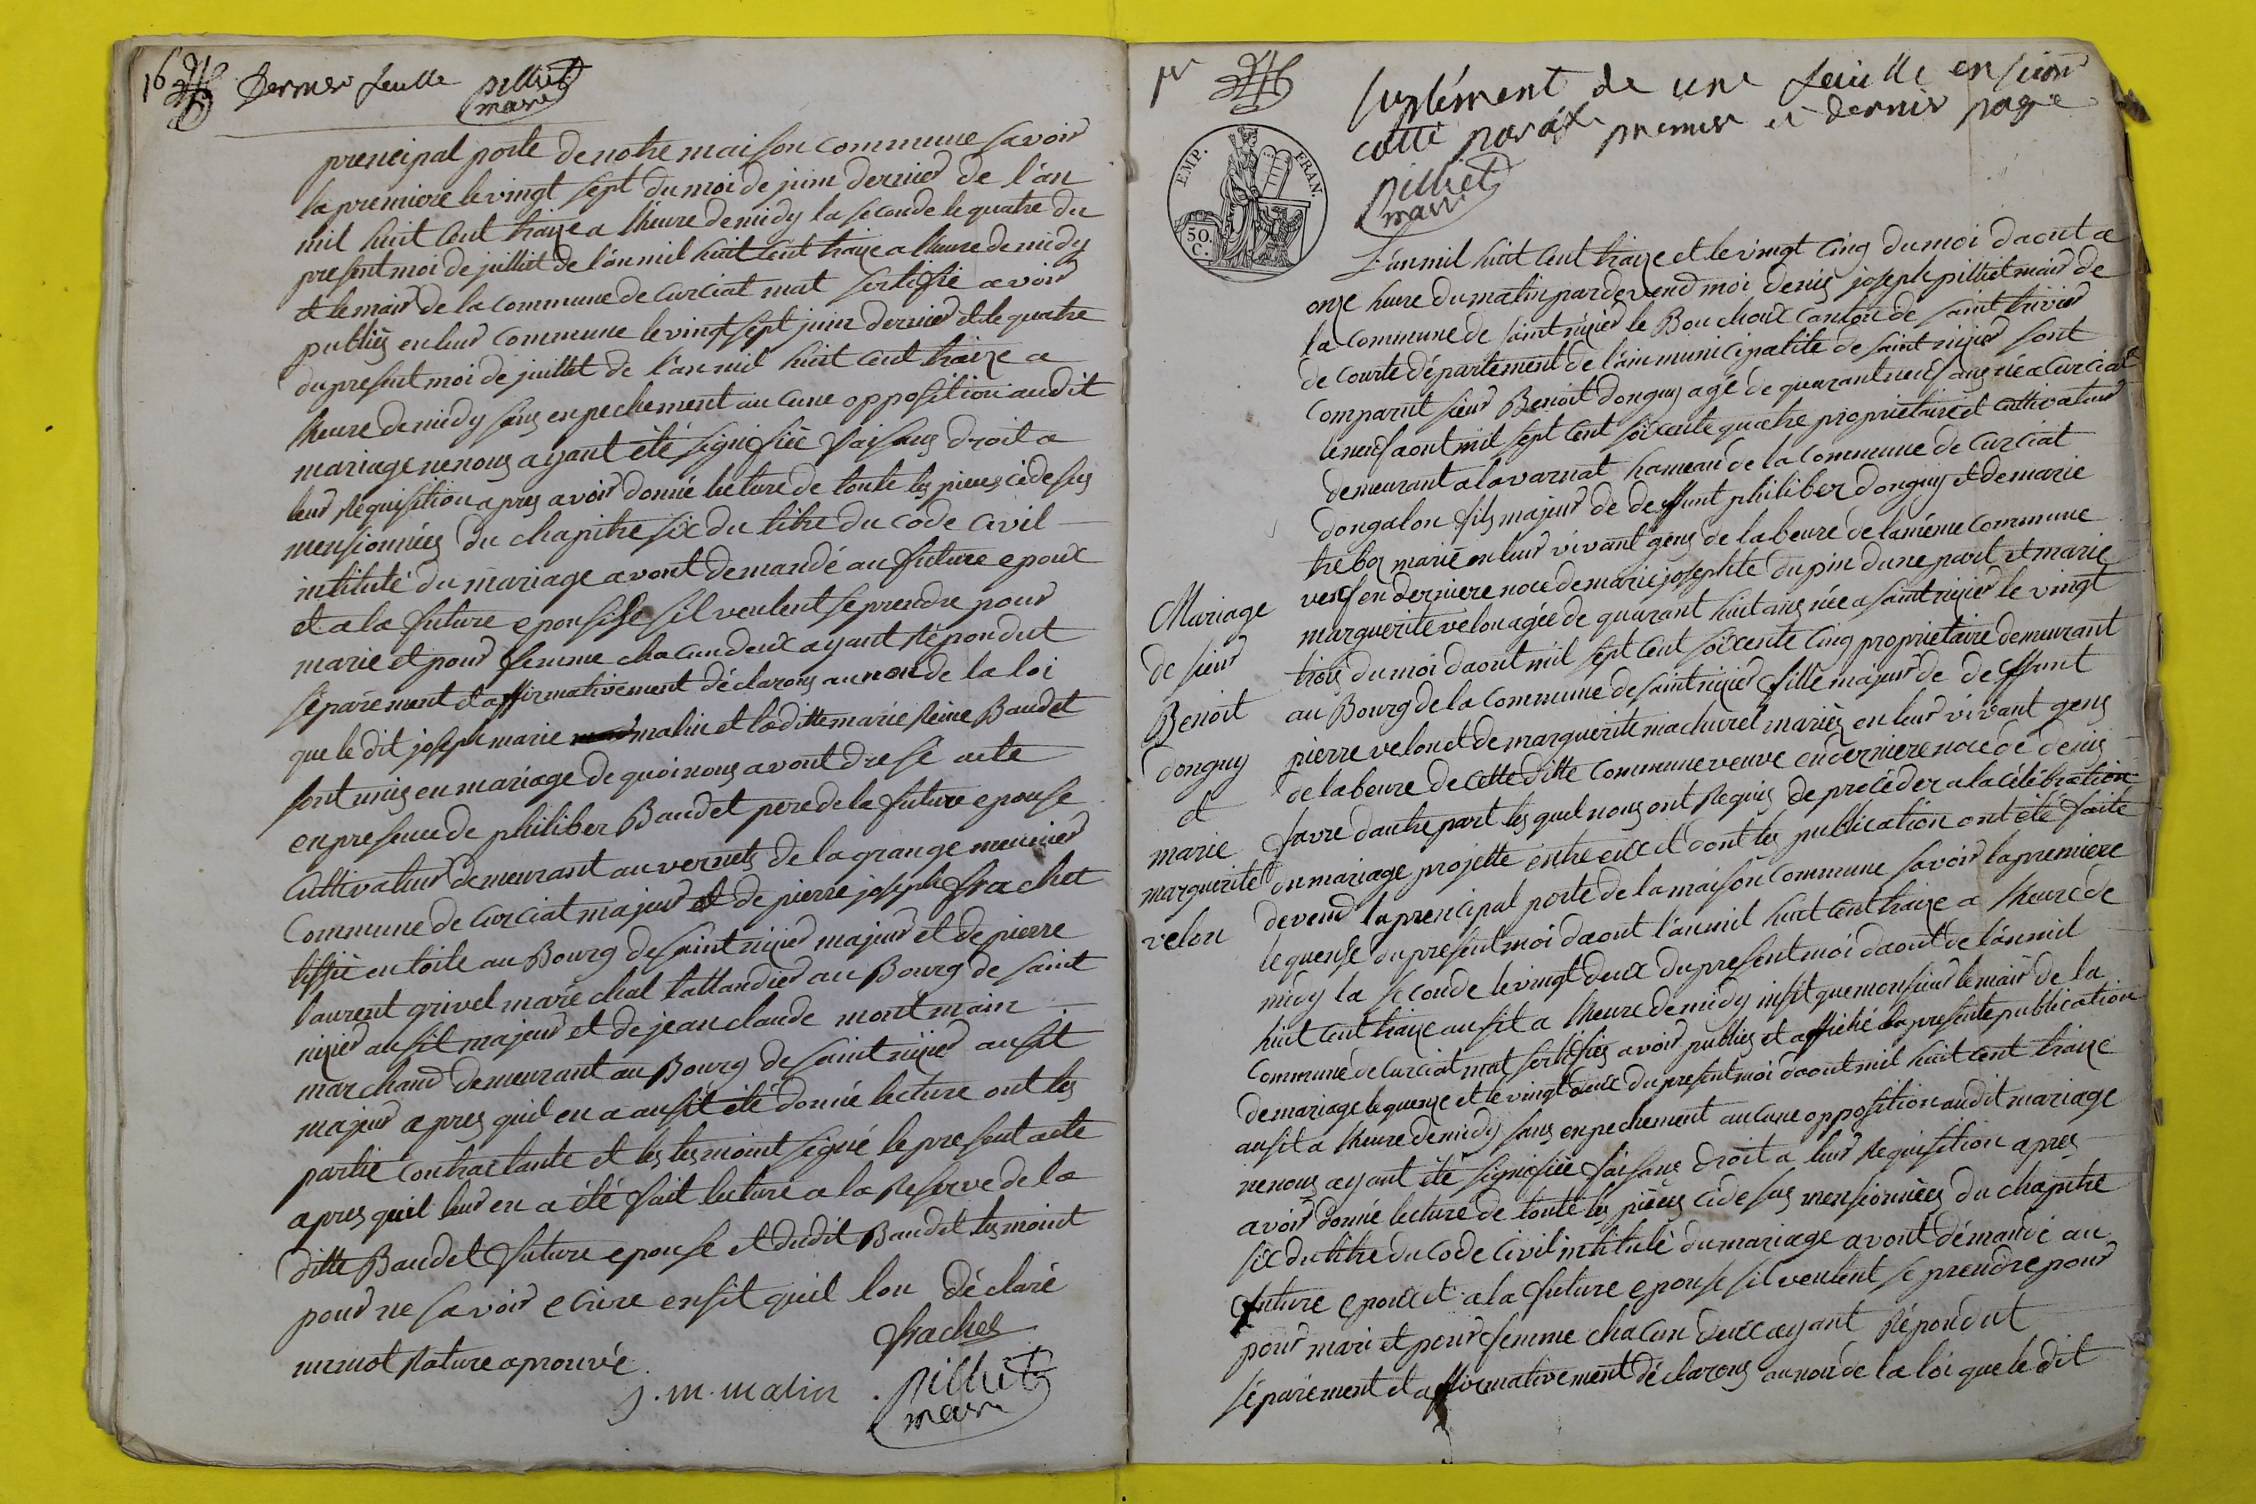 16 Dernier feulle pilliet
maire
prencipal porte de notre maison commune savoir
la premiere le vingt sept du moi de juin dernier de l'an
mil huit cent traize a lheure de midy la seconde le quatre du
present moi de juilliet de l'an mil huit cent traize a lheure de midy
et le mair de la commune de curciat mat sertifié avoir
publiés en leur commune le vingt sept juin dernier et le quatre
du present moi de juillet de l'an mil huit cent traize a
lheure de midy sans enpechement aucune opposition audit
mariage ne nous ayant été signifiée faisans droit a
leur requisition apres avoir donné lecture de toute les pieces cidesus
mensionnées du chapitre six du titre du code civil
intitulé du mariage avont demandé au future epoux
et a la future epouse sil veulent se prendre pour
marie et pour femme chacun deux ayant répondut
séparément et affirmativement déclarons au non de la loi
que le dit joseph marie malin et la ditte marie reine Baudet
sont unis en mariage de quoi nous avont dresé acte
en presence de philiber Baudet pere de la future epouse
cultivateur demeurant au vernets de la grange meunier
Commune de curciat majeur et de pierre joseph frachet
tissié en toile au Bourg de saint nizier majeur et de pierre
laurent grivel maréchal tallandier au Bourg de saint
nizier ausit majeur et de jean claude montmain
marchand demeurant au Bourg de saint nizier ausit
majeur apres quil en a ausit été donné lecture ont les
partie contractante et les tesmoint signé le present acte
apres quil leur en a été fait lecture a la reserve de la
ditte Baudet future epouse et dudit Baudet tesmoint
pour ne savoir ecrire ensit quil lon déclaré
un mot rature aprouvé
frachet
j. m. malin pilliet
maire
1er suplément de une feuille en
cotté paráfé premier et dernir page
pilliet
maire
EMP. FRAN.
50. C.
L'an mil huit cent traize et le vingt cinq du moi daout a
onze heure du matin pardevend moi denis joseph pilliet mair de
la commune de saint nizier le Bouchoux canton de saint trivier
de courte département de l'ain municipalité de saint nizier sont
comparut sieur Benoit donguy agé de quarant neuf ans née a curciat
le neuf aout mil sept cent soixente quatre proprietaire et cultivateur
demeurant a lavarnat hameau de la commune de curciat
dongalon fils majeur de deffunt philiber donguy et de marie
trebos marié en leur vivant gens de labeure de la méme commune
veuf en derniere noce de marie josephte dupin dune part et marie
marguerite velon agée de quarant huit ans née a saint nizier le vingt
trois du moi daout mil sept cent soixente cinq proprietaire demeurant
au Bourg de la commune de saint nizier fille majeur de deffunt
pierre velon et de marguerite machurel mariés en leur vivant gens
de labeure de cette ditte commune veuve en derniere noce de denis
favre dautre part les quel nous ont requis de procéder a la célébration
du mariage projetté entre eux et dont les publication ont été faite
devend la prencipal porte de la maison commune savoir la premiere
le quense du present moi daout l'an mil huit cent traize a lheure de
midy la seconde le vingt deux du present moi daout de l'an mil
huit cent traize ausit a lheure de midy insit que monsieur le mair de la
Commune de curciat mat sertifiés avoir publiés et affiché la presente publication
de mariage le quenze et le vingt deux du present moi daout mil huit cent traize
ausit a lheure de midy sans enpechement aucune opposition audit mariage
ne nous ayant été signifiée faisans droit a leur requisition apres
avoir donné lecture de toute les pièces cidesus mensionnées du chapitre
six du titre du code civil intitulé du mariage avont démandé au
future epoux et a la future epouse sil veulent se prendre pour
pour mari et pour femme chacun deux ayant répondut
séparément et affirmativement déclarons au non de la loi que le dit
Mariage
de sieur
Benoit
donguy
et
marie
marguerite
velon